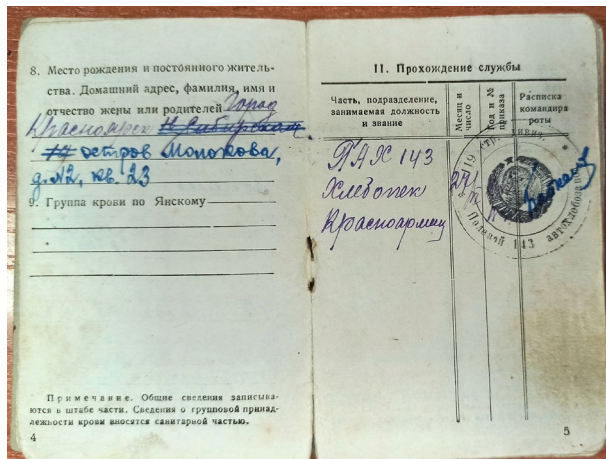 8. Место рождения и постоянного житель-
ства. Домашний адрес, фамилия, имя и
отчество жены или родителей Город
Красноярск
остров Молокова,
д. №2, кв. 23
9. Группа крови по Янскому
Примечание. Общие сведения записыва-
ются в штабе части. Сведения о групповой принад-
лежности крови вносятся санитарной частью.
4
11. Прохождение службы
Часть, подразделение,
занимаемая должность
и звание
Месяц и
число
Код и №
приказа
Расписка
командира
роты
ПАХ 143
Хлебопек
Красноармеец
Полевой 143
5